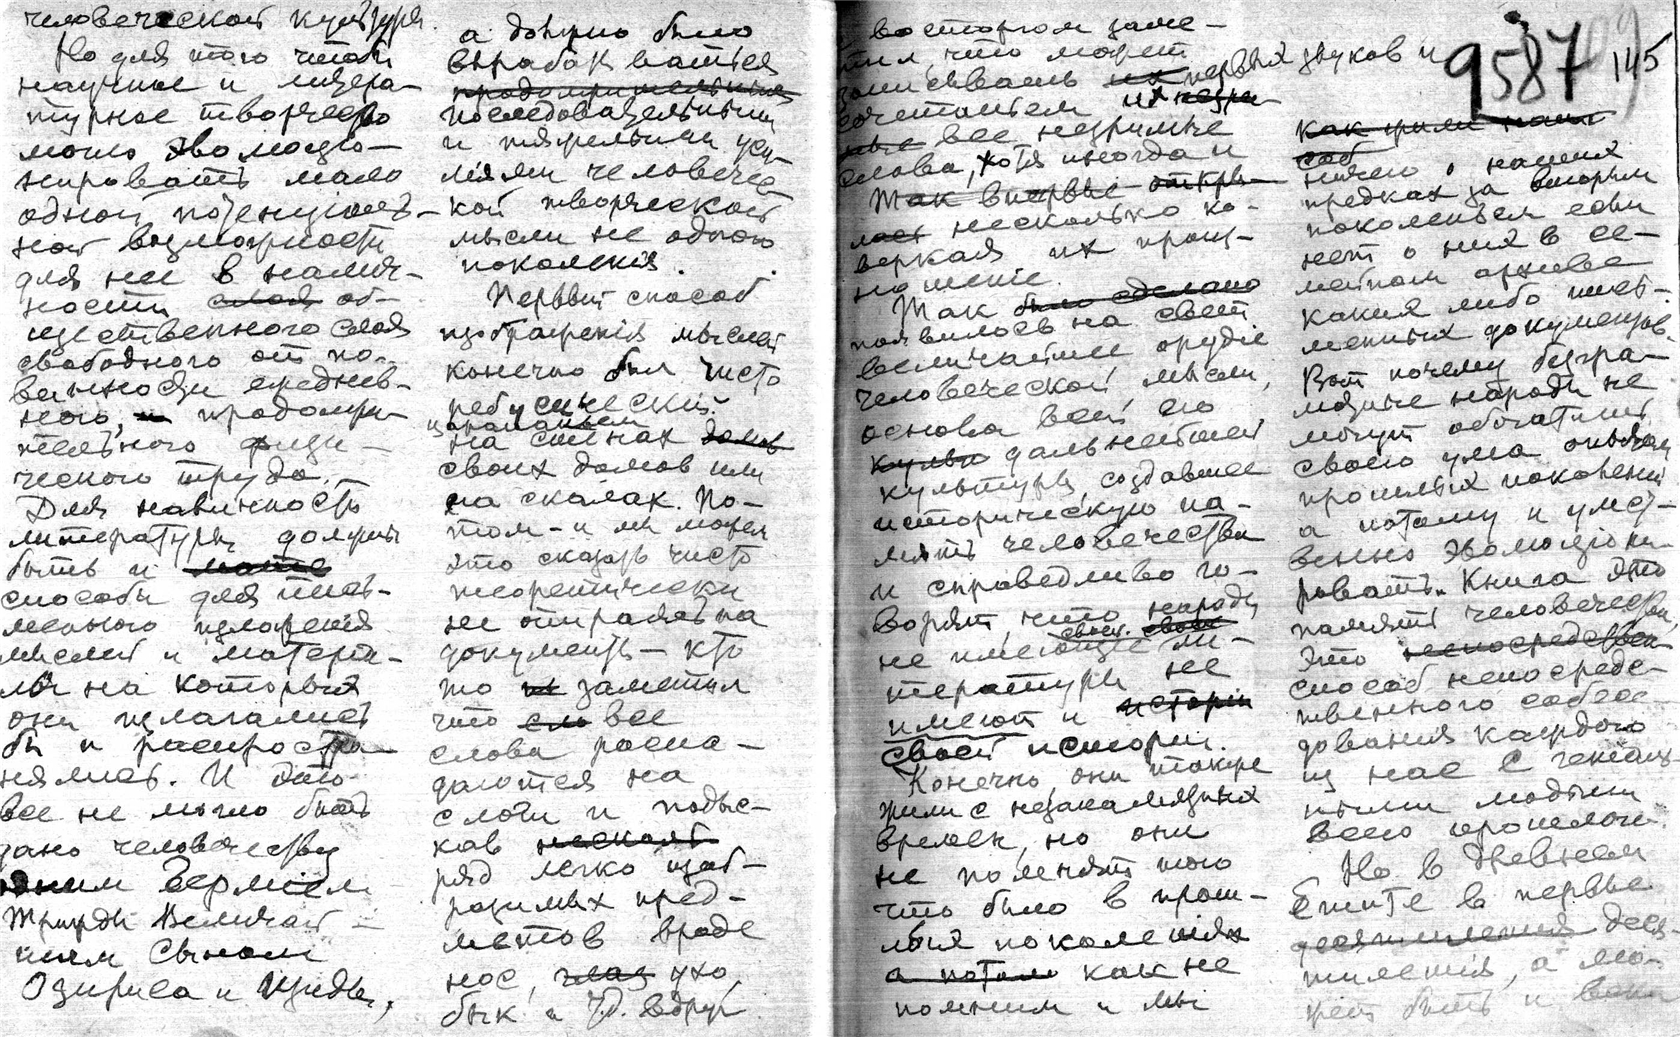 человеческой культуры.
Но для того чтобы
научное и литера-
турное творчество
могло эволюцио-
нировать мало
одной потенциаль-
ной возможности
для нее в налич-
ности слоя об-
щественного слоя
свободного от по-
винности ежеднев-
ного, и продолжи-
тельного физи-
ческого труда.
Для наличности
литературы должны
быть и
способы для пись-
менного изложения
мыслей и матери-
лы на которых
они излагались
бы и распростра-
нялись. И это
все не могло быть
дано человечеству
одним Гермесом
Трижды Величай-
шим сыном
Озириса и Изиды,
а должно было
вырабатываться
продолжительными
последовательными
и тяжелыми уси-
лиями человечес-
кой творческой
мысли не одного
поколенія.
Первый способ
изображенія мыслей
конечно был чисто
ребусический
царапаньем
на стенах домов
своих домов или
на скалах. По-
том - и мы можем
это сказать чисто
теоретически
не опираясь на
документы - кто
то заметил
что сло все
слова распа-
даются на
слоги и подыс-
кав несколь
ряд легко изоб-
разимых пред-
метов вроде
нос, глаз ухо
бык и т.д. вдруг
с восторгом заме-
тил, что может
записывать их первых звуков и
сочетанием их незри
мые все незримые
слова, хотя иногда и
Так впервые откры-
лось несколько ко-
веркая их произ-
ношеніе.
Так было сделано
появилось на свет
величайшее орудіе
человеческой мысли,
основа всей его
культу дальнейшей
культуры, создавшее
историческую па-
мять человечества
и справедливо го-
ворят, что народы
не имеющие своей своей ли-
тературы не
имеют и исторіи
своей исторіи.
Конечно они также
жили с незапамятных
времен, но они
не помнят того
что было в прош-
лых поколеніях
а потом как не
помним и мы
9587
145
как жили наши
соб
ничего о наших
предках за вторым
поколеньем если
нет о них в се-
мейном архиве
каких либо пись-
менных документов.
Вот почему безгра-
мотные народы не
могут обогатить
своего ума опытом
прошлых поколений
а потому и умст-
венно эволюціони-
ровать. Книга это
память человечества,
это непосредствен
способ непосредс-
твенного собесе-
дования каждого
из нас с
людьми
всего прошлого.
Но в древнем
Египте в первые
десятилетия деся-
тилетія, а мо-
жет быть и века